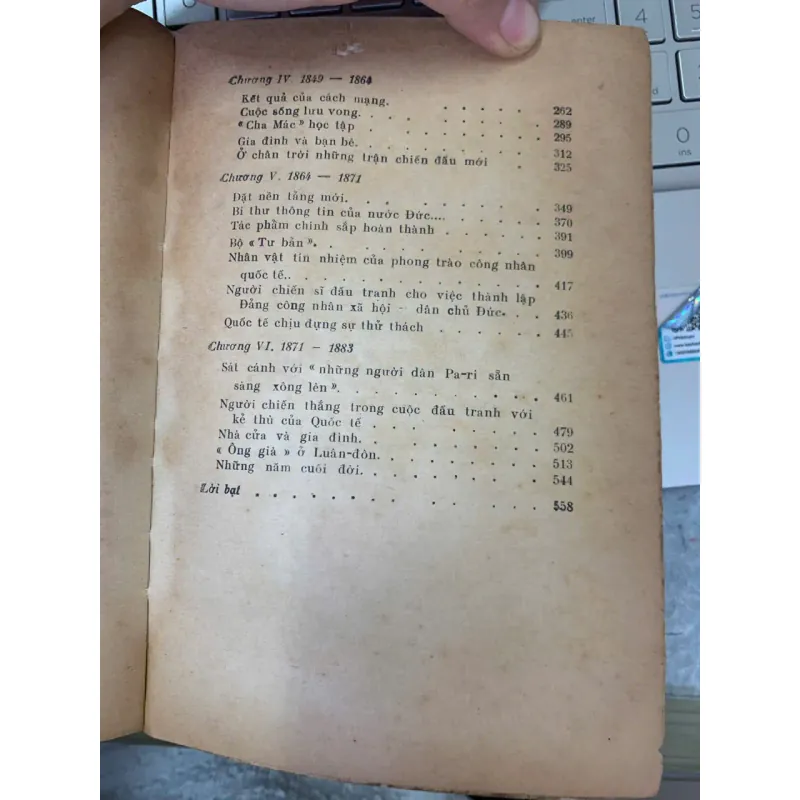 Chương IV. 1849 — 1864
Kết quả của cách mạng.
Cuộc sống lưu vong. . . . . . . . 262
« Cha Mác » học tập . . . . . . . 289
Gia đình và bạn bè. . . . . . . . 295
Ở chân trời những trận chiến đấu mới 312
. 325
Chương V. 1864 — 1871
Đặt nền tảng mới. . . . . . . . . 349
Bí thư thông tin của nước Đức.... . . . 370
Tác phẩm chính sắp hoàn thành . . . . . 391
Bộ « Tư bản ». . . . . . . . . . 399
Nhân vật tín nhiệm của phong trào công nhân
quốc tế.. . . . . . . . . . . 417
Người chiến sĩ đấu tranh cho việc thành lập
Đảng công nhân xã hội - dân chủ Đức. . . 436
Quốc tế chịu đựng sự thử thách . . . . . 445
Chương VI. 1871 — 1883
Sát cánh với « những người dân Pa-ri sẵn
sàng xông lên ». . . . . . . . . 461
Người chiến thắng trong cuộc đấu tranh với
kẻ thù của Quốc tế . . . . . . . 479
Nhà cửa và gia đình. . . . . . . . 502
« Ông già » ở Luân-đôn. . . . . . . 513
Những năm cuối đời. . . . . . . . 544
Lời bạt . . . . . . . . . . . 558
enter
4
5
0
ins